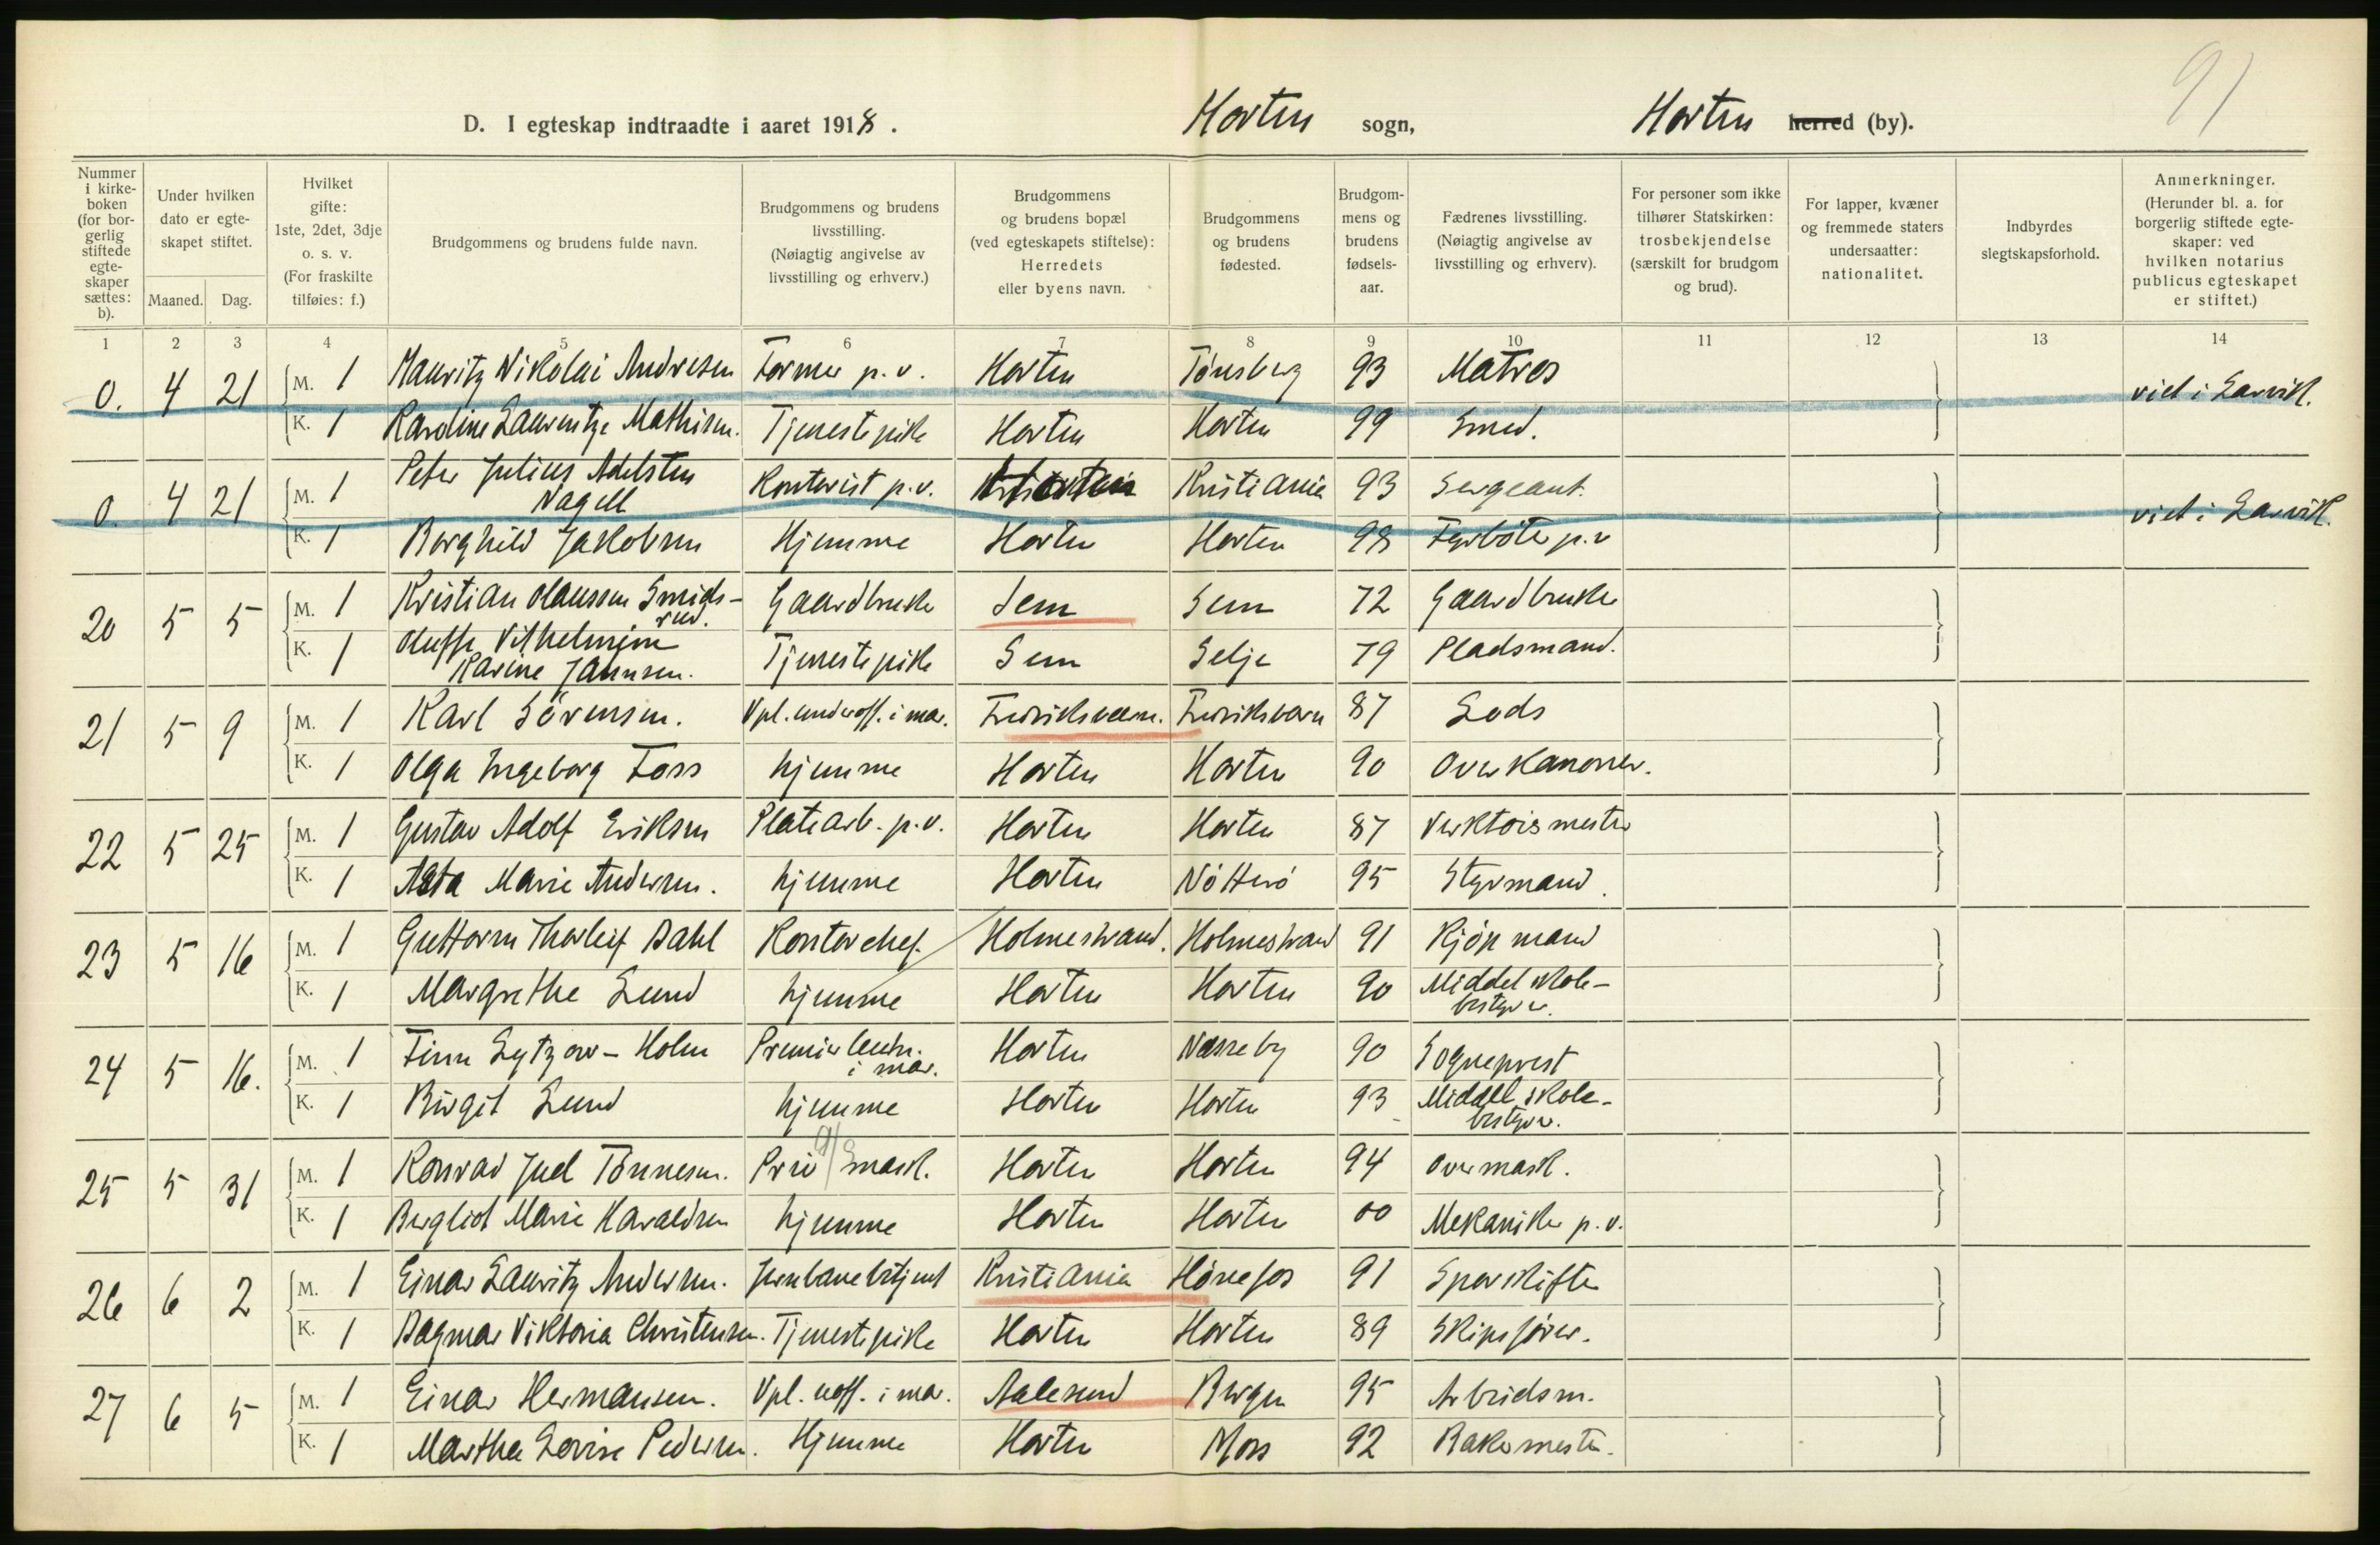 91
D. I egteskap indtraadte i aaret 1918. Horten sogn, Horten herred (by).
Nummer i kirke-boken (for bor-gerlig stiftede egte-skaper sættes: b).
Under hvilken dato er egte-skapet stiftet.
Maaned. Dag.
Hvilket gifte: 1ste, 2det, 3dje o. s. v. (For fraskilte tilføies: f.)
Brudgommens og brudens fulde navn.
Brudgommens og brudens livsstilling. (Nøiagtig angivelse av livsstilling og erhverv.)
Brudgommens og brudens bopæl (ved egteskapets stiftelse): Herredets eller byens navn.
Brudgommens og brudens fødested.
Brudgom-mens og brudens fødsels-aar.
Fædrenes livsstilling. (Nøiagtig angivelse av livsstilling og erhverv).
For personer som ikke tilhører Statskirken: trosbekjendelse (særskilt for brudgom og brud).
For lapper, kvæner og fremmede staters undersaatter: nationalitet.
Indbyrdes slegtskapsforhold.
Anmerkninger. (Herunder bl. a. for borgerlig stiftede egte-skaper: ved hvilken notarius publicus egteskapet er stiftet.)
1 2 3 4 5 6 7 8 9 10 11 12 13 14
0. 4 21 M. 1 Mauritz Nikolai Andresen Former p. v. Horten Tønsberg 93 Matros viet i Larvik.
K. 1 Karoline Laurentze Mathisen. Tjenestepike Horten Horten 99 Smed.
0. 4 21 M. 1 Peter Julius Adelsten Nagell Kontorist p. v. Kristiania 93 Sergeant. viet i Larvik.
K. 1 Borghild Jakobsen Hjemme Horten Horten 98 Fyrbøter p. v
20 5 5 M. 1 Kristian Olaussen Smids-rud. Gaardbruker Sem Sem 72 Gaardbruker
K. 1 Oluffe Vilhelmine Karine Jahnsen. Tjenestepike Sem Selje 79 Pladsmand.
21 5 9 M. 1 Karl Sörensen. Vpl. underoff. i mar. Fredriksværn. Fredriksværn 87 Lods
K. 1 Olga Ingeborg Foss hjemme Horten Horten 90 Overkanoner.
22 5 25 M. 1 Gustav Adolf Eriksen Platearb. p. v. Horten Horten 87 Verktøismester
K. 1 Asta Marie Andersen. hjemme Horten Nötterö 95 Styrmand.
23 5 16 M. 1 Guttorm Thorleif Dahl Kontorchef. Holmestrand. Holmestrand 91 Kjøpmand
K. 1 Margrethe Lund hjemme Horten Horten 90 Middelskole-bestyrer.
24 5 16. M. 1 Finn Lytzow-Holm Premierleutn. i mar. Horten Næsseby 90 Sogneprest
K. 1 Birgit Lund hjemme Horten Horten 93 Middelskole-bestyrer.
25 5 31 M. 1 Konrad Juel Tönnesen. mask. Horten Horten 94 Overmask.
K. 1 Bergliot Marie Haraldsen hjemme Horten Horten 00 Mekaniker p. v.
26 6 2 M. 1 Einar Lauritz Andersen. Jernbanebetjent Kristiania Hönefos 91 Sporskifter
K. 1 Dagmar Viktoria Christensen. Tjenestepike Horten Horten 89 Skipsfører.
27 6 5 M. 1 Einar Hermansen. Vpl. uoff. i mar. Aalesund Bergen 95 Arbeidsm.
K. 1 Martha Lovise Pedersen. Hjemme Horten Moss 92 Bakermester.